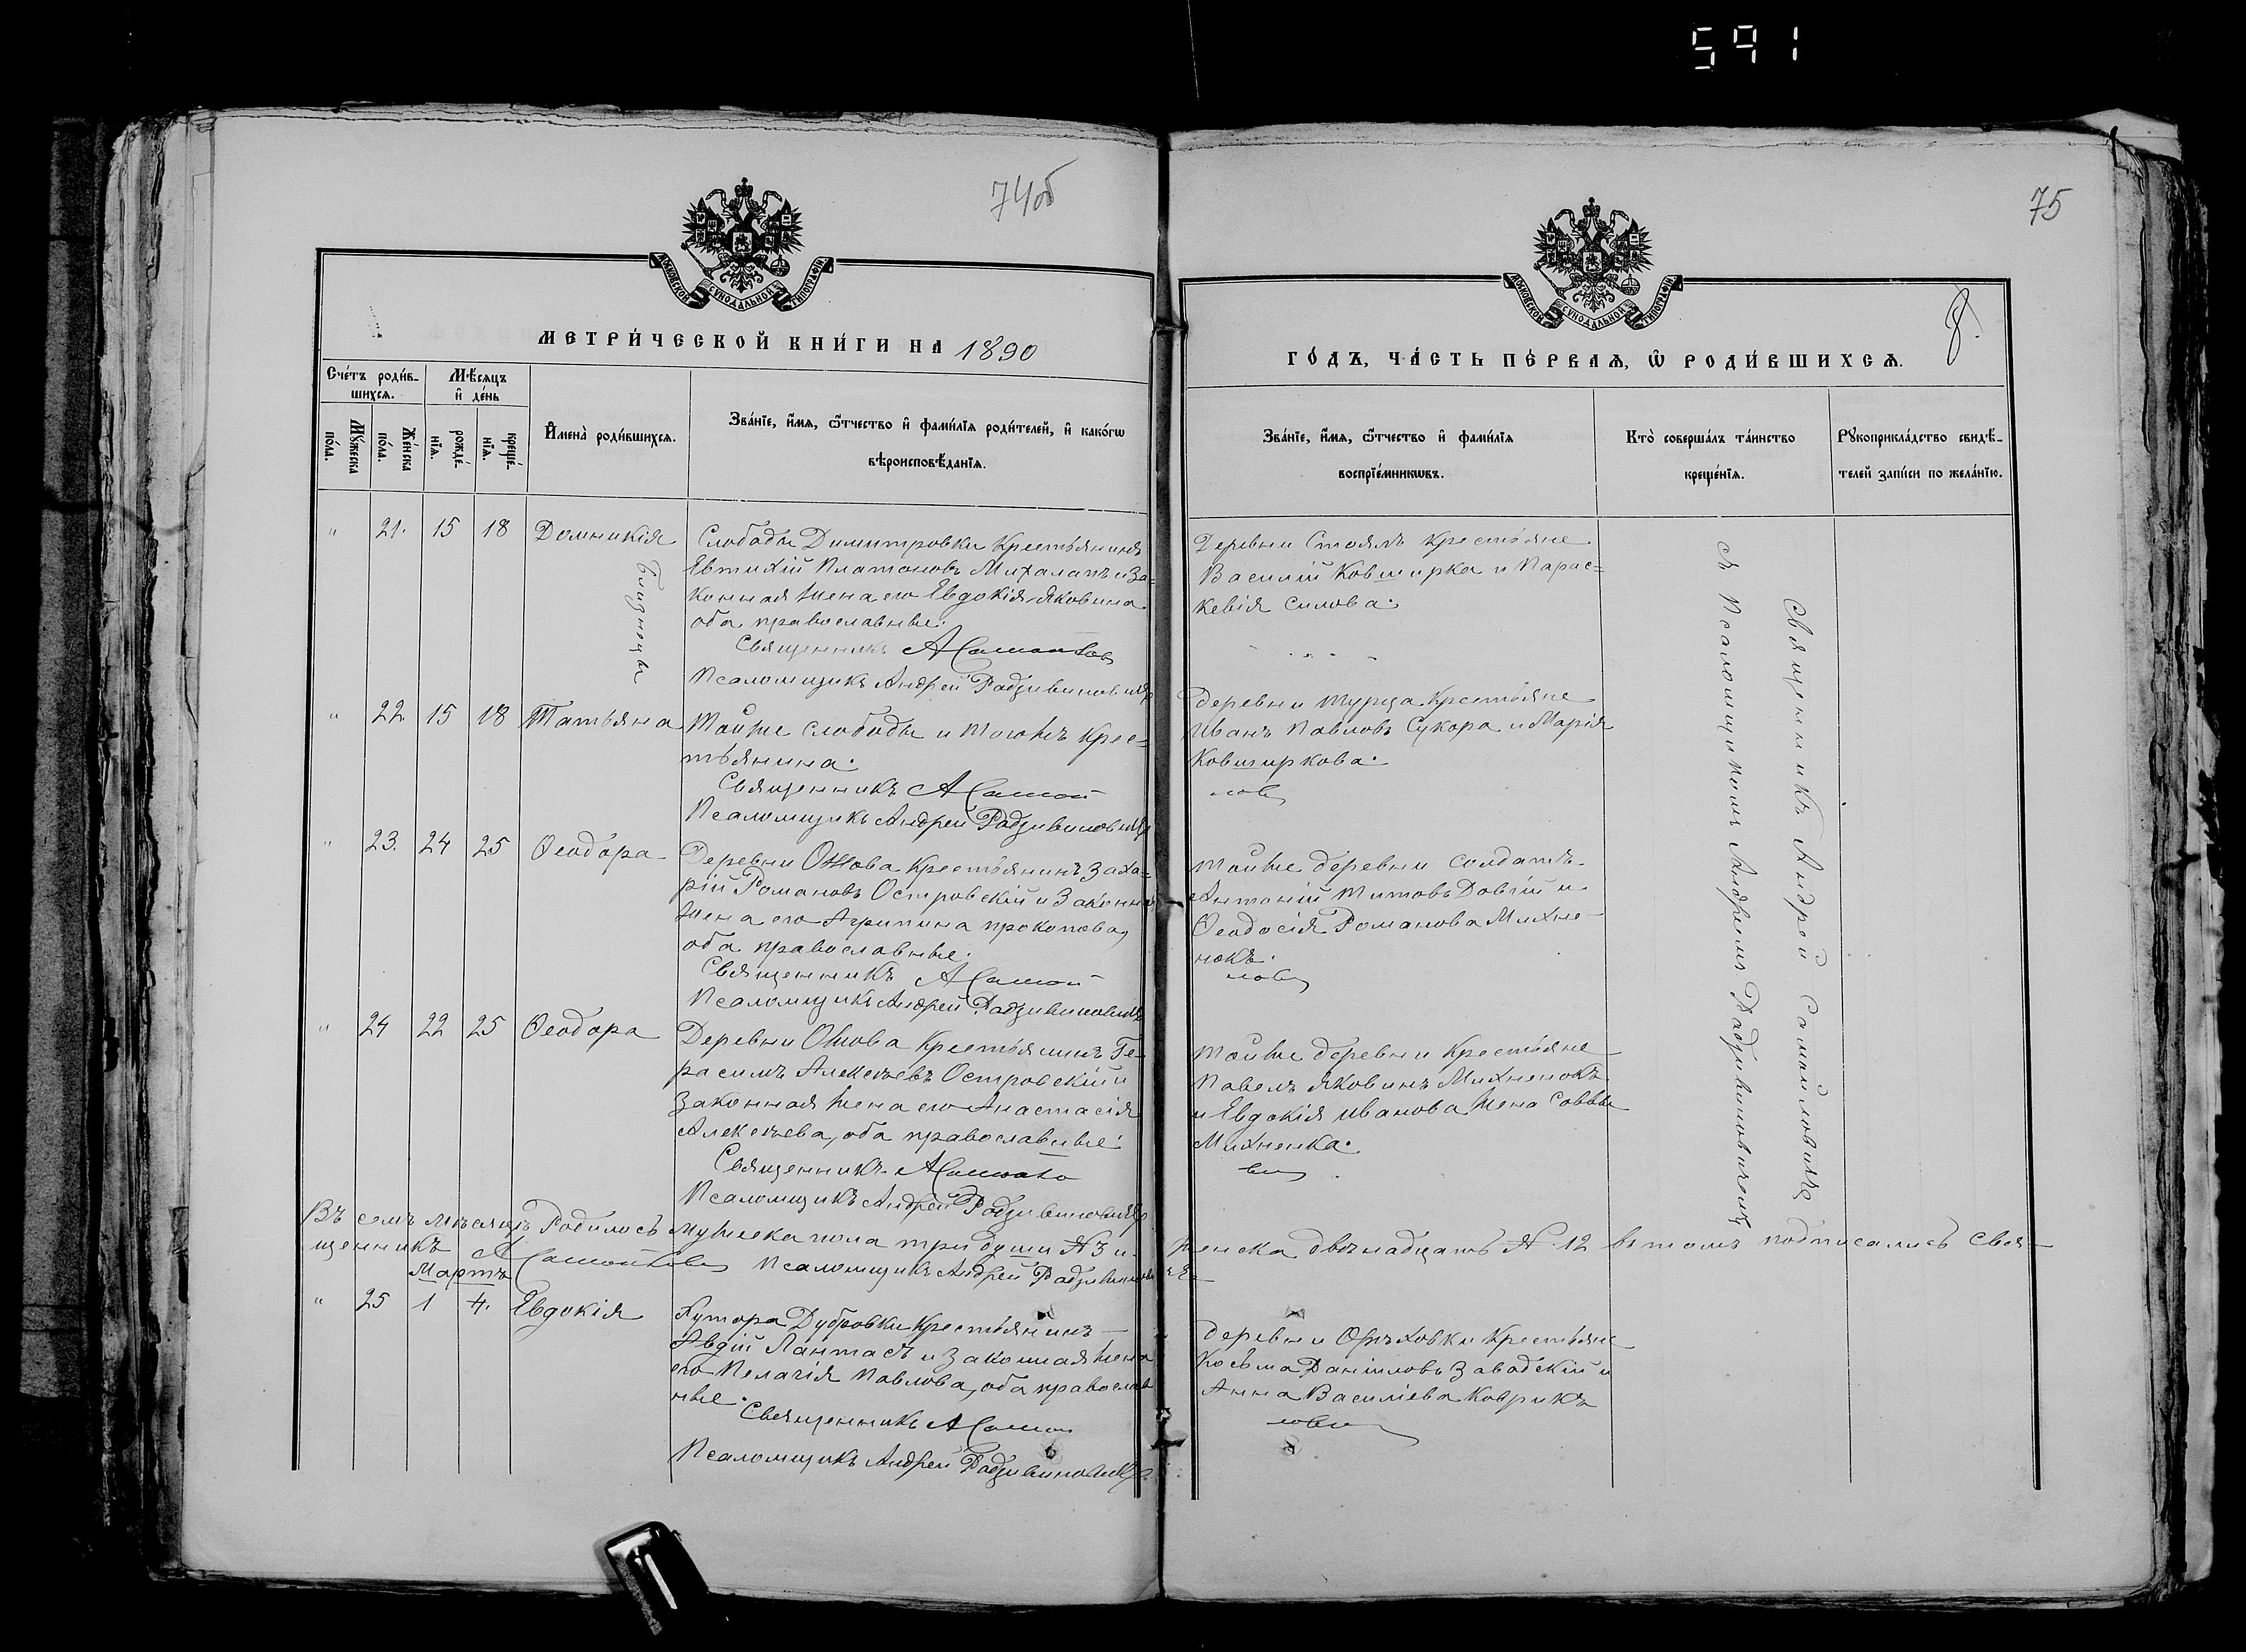 591
74об
75
МОСКОВСКОЙ СУНОДАЛЬНОЙ ТИПОГРАФІИ
МОСКОВСКОЙ СУНОДАЛЬНОЙ ТИПОГРАФІИ
8.
МЕТРИ́ЧЕСКОЙ КНИ́ГИ НА 1890
ГО́ДЪ, ЧА́СТЬ ПЕ́РВАѦ, Ѡ РОДИ́ВШИХСѦ.
Сче́тъ роди́в-
шихсѧ.
Мꙋ́жеска
по́ла.
Же́нска
по́ла.
Мѣ́сѧцъ
и҆ де́нь
рожде́-
нїѧ.
креще́-
нїѧ.
И҆мена̀ роди́вшихсѧ.
Зва́нїе, и҆́мѧ, ѻ҆́тчество и҆ фами́лїѧ роди́телей, и҆ како́гѡ
вѣроисповѣ́данїѧ.
Зва́нїе, и҆́мѧ, ѻ҆́тчество и҆ фами́лїѧ
воспрїе́мникѡвъ.
Кто̀ соверша́лъ та́инство
креще́нїѧ.
Рꙋкоприкла́дство свидѣ́-
телей за́писи по жела́нїю.
" 21. 15 18 Домникія
Близнецы
Слободы Димитровки Крестьянинъ
Евтихій Платоновъ Михалапъ и за-
конная жена его Евдокія Яковина
оба православные.
Священникъ А Самойлов
Псаломщикъ Андрей Радзивиновичъ
Деревни Стоялъ крестьяне
Василій Ковширка и Парас=
кевія Силова.
" 22 15 18 Татьяна
Тойже слободы и тогожъ крес-
тьянина.
Священникъ А Самой
Псаломщикъ Андрей Радзивиновичъ
Деревни Турца Крестьяне
Иванъ Павловъ Сукора и Марія
Ковширкова.
лов
" 23. 24 25 Ѳеодора
Деревни Ожова Крестьянинъ Заха-
рій Романовъ Островскій и Законна
жена его Агрипина Прокопова,
оба православные.
Священникъ А Самой
Псаломщикъ Андрей Радзивиновичъ
Тойже деревни солдатъ
Антоній Титовъ Довгій и
Ѳеодосія Романова Михне-
нокъ.
лов
" 24 22 25 Ѳеодора
Деревни Ожова Крестьянинъ Ге-
расимъ Алексѣевъ Островскій и
Законная жена его Анастасія
Алексѣева, оба православные.
Священникъ А Самойло
Псаломщикъ Андрей Радзивиновичъ
Тойже деревни Крестьяне
Павелъ Яковинъ Михненокъ
и Евдокія Иванова жена Саввы
Михненка.
Въ семъ мѣсяцѣ Родилось мужеска пола три души № 3 и женска двѣнадцать № 12 въ томъ подписались Свя-
щенникъ А Самойлов Псаломщикъ Андрей Радзивинович
Мартъ
" 25 1 4. Евдокія
Хутора Дубровки Крестьянинъ
Авдій Лантасъ и законная жена
его Пелагія Павлова, оба православ
ные.
Священникъ А Самой
Псаломщикъ Андрей Радзивиновичъ
Деревни Орѣховки Крестьяне
Косьма Даніиловъ Завадскій и
Анна Василіева Коврикъ
Священникъ Андрей Самойловичъ
съ Псаломщикомъ Андреемъ Радзивиновичемъ